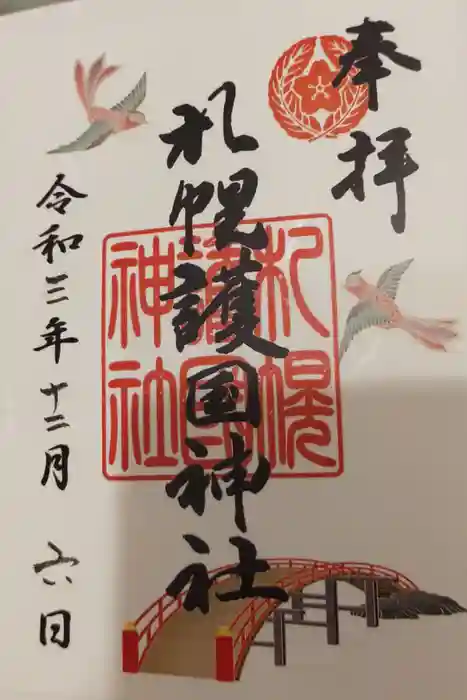 奉拝
札幌護国神社
札幌護国神社
令和三年十二月六日